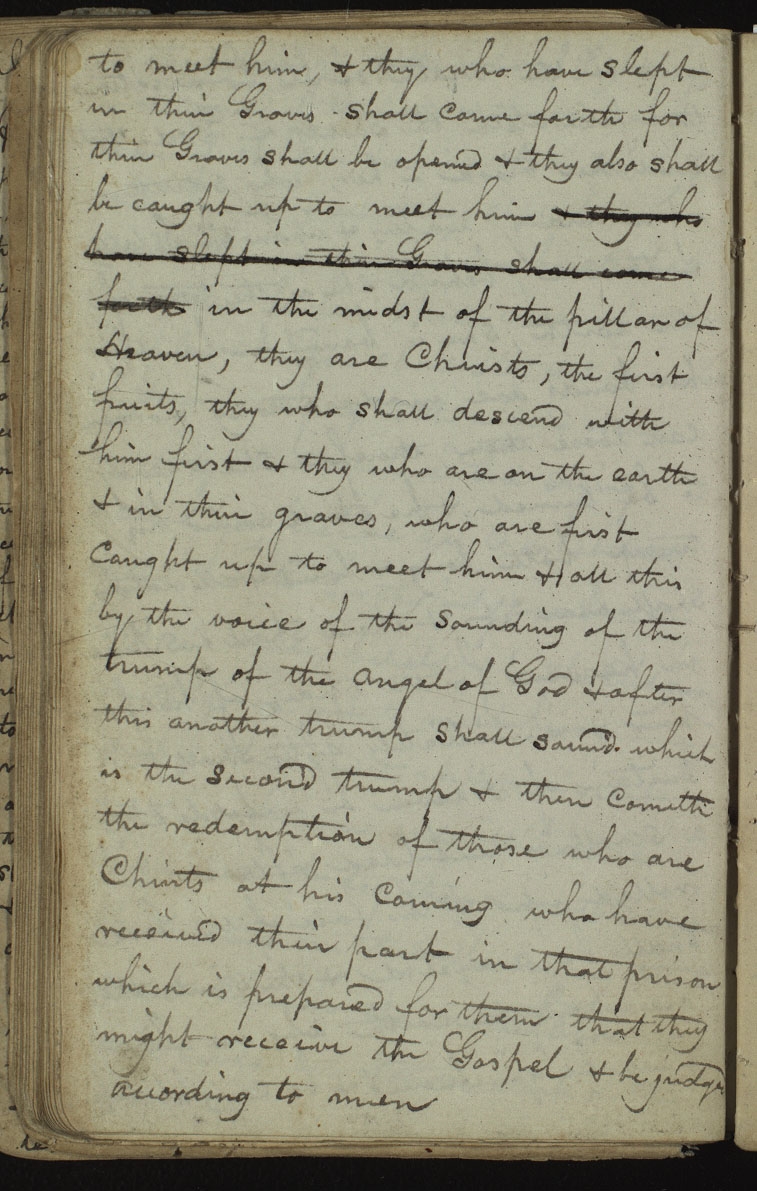 to meet him, & they who have slept
in thier Graves shall come forth for
thier Graves shall be opened & they also shall
be caught up to meet him & they who
have slept in thier Graves shall come
forth in the midst of the pillar of
Heaven, they are Christs, the first
fruits, they who shall descend with
him first & they who are on the earth
& in thier graves, who are first
caught up to meet him & all this
by the voice of the Sounding of the
trump of the angel of God & after
this another trump shall sound which
is the second trump & then cometh
the redemption of those who are
Chirts at his coming who have
received thier part in that prison
which is prepared for them that they
might receive the Gospel & be judge
acording to men